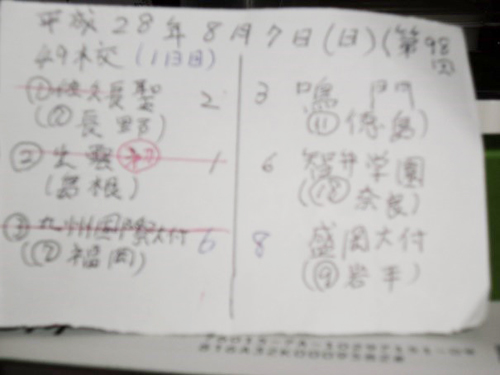 平成28年8月7日(日)(第98回)
49本校(1日目)
①佐久長聖 2 3 鳴門
(⑦長野) (⑪徳島)
②出雲 初 1 6 智弁学園
(島根) (⑱奈良)
③九州国際大付 6 8 盛岡大付
(⑦福岡) (⑨岩手)